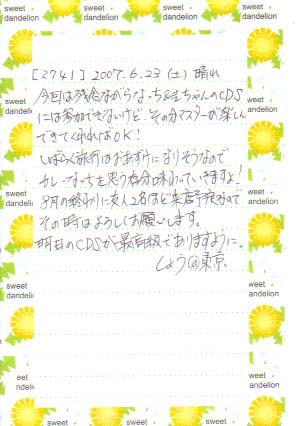 sweet dandelion
sweet dandelion
sweet dandelion
[2741] 2007.6.23 (土) 晴れ
今回は残念ながらなっち&圭ちゃんのCDS
には参加できないけど、その分マスターが楽しん
できてくれればOK!
しばらく旅行はおあずけになりそうなので
カレーなっちを思う存分味わっていきますよ!
8月の終わりに友人2名ほど来店予定なので
その時はよろしくお願いします。
明日のCDSが最高級でありますように。
しょう@東京
sweet dandelion
sweet dandelion
sweet dandelion
sweet dandelion
eet dandelion
sweet dandelion
sweet
sweet
sweet